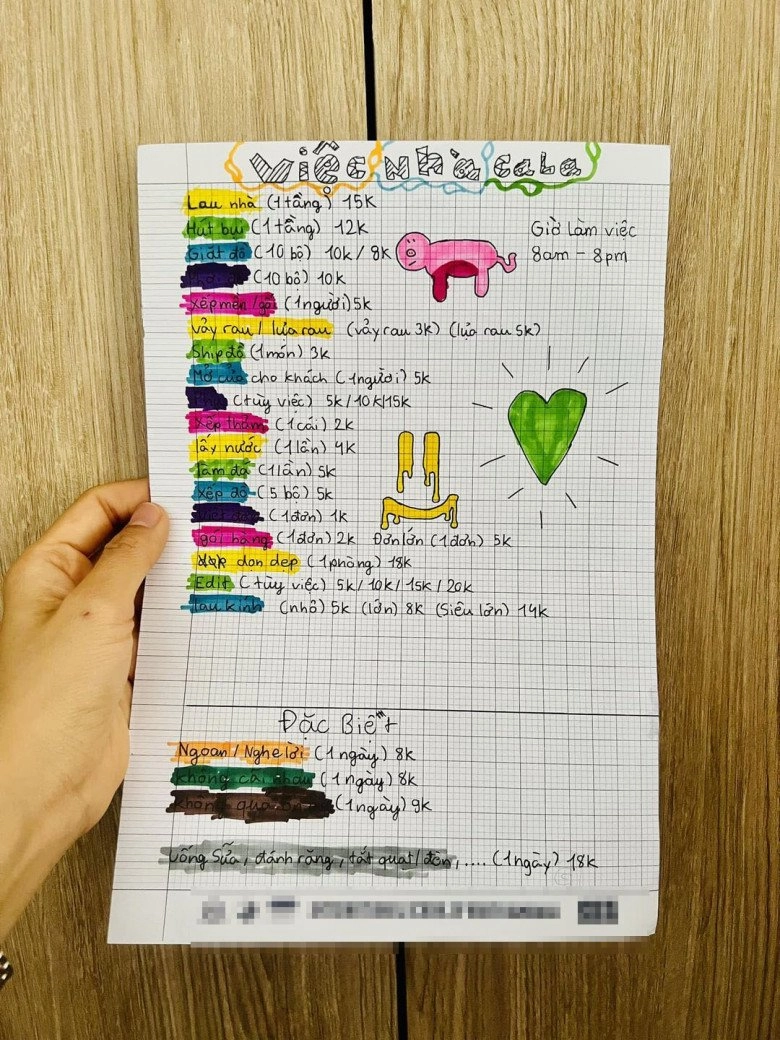 Việc Nhà CaLa
Lau nhà (1 tầng) 15K
Hút bụi (1 tầng) 12k
Giờ làm việc
8am - 8pm
Giặt đồ (10 bộ) 10k / 8k
(10 bộ) 10k
Xếp mền / gối (1 người) 5k
Vảy rau / lựa rau (vảy rau 3k) (lựa rau 5k)
Ship đồ (1 món) 3k
Mở cửa cho khách (1 người) 5k
(tùy việc) 5k/10k/15k
Xếp thảm (1 cái) 2k
lấy nước (1 lần) 4k
làm đá (1 lần) 5k
xếp đồ (5 bộ) 5k
(1 đơn) 1k
gói hàng (1 đơn) 2k Đơn lớn (1 đơn) 5k
dọn dẹp (1 phòng) 18k
Edit (tùy việc) 5k/10k/15k/20k
Lau kính (nhỏ) 5k (lớn) 8k (Siêu lớn) 14k
Đặc Biệt
Ngoan / Nghe lời (1 ngày) 8k
không cãi nhau (1 ngày) 8k
không (1 ngày) 9k
Uống Sữa, đánh răng, tắt quạt/đèn, .... (1 ngày) 18k